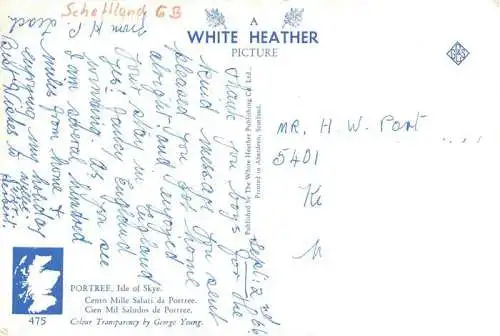 Schottland GB
A
WHITE HEATHER
PICTURE
Sept. 2nd
Thank you boys for the
kind message you sent
pleased you got home
alright and enjoyed
your stay in England
Yes! Fancy England
winning. as you see
I am several hundred
miles from home &
enjoying my holiday
Best Wishes to you
Herbert.
MR. H. W. Port
5401
K
Published by The White Heather Publishing Co. Ltd.
Printed in Aberdeen, Scotland.
PORTREE, Isle of Skye.
Cento Mille Saluti da Portree.
Cien Mil Saludos de Portree.
Colour Transparency by George Young.
475